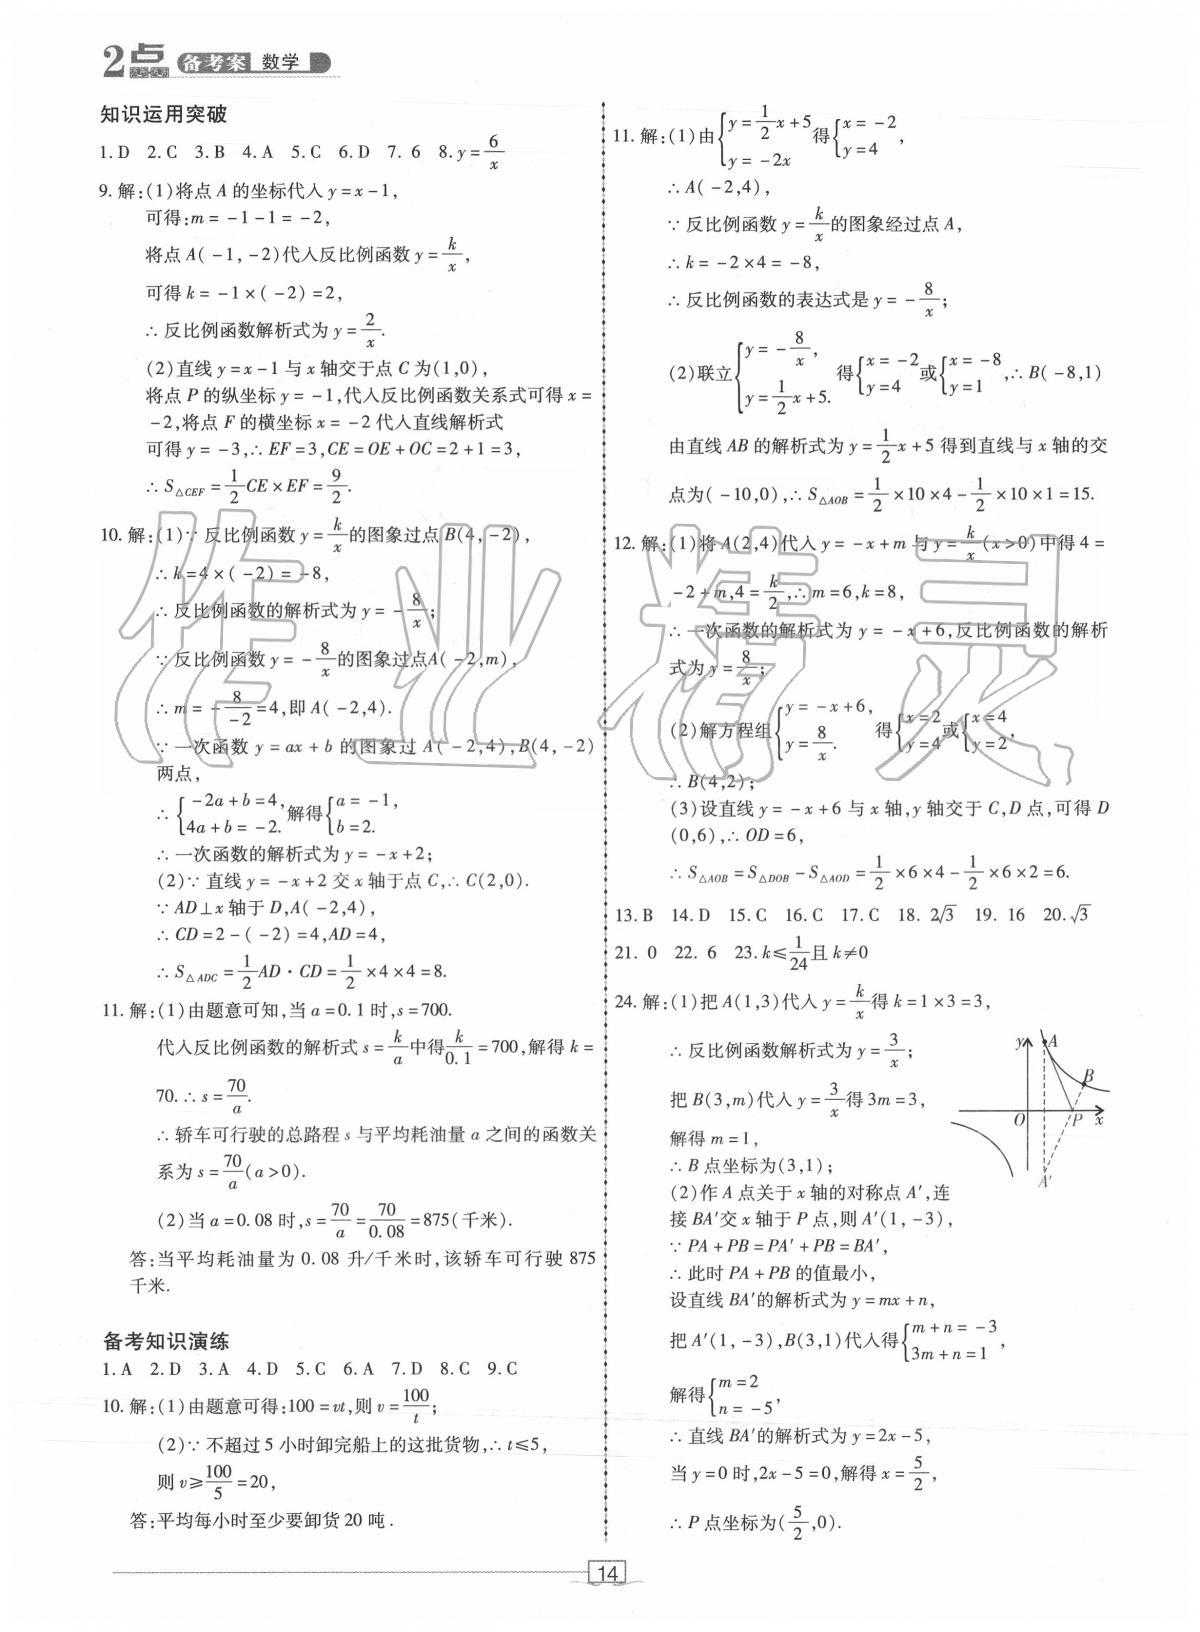 2点 备考案 数学
知识运用突破
1. D 2. C 3. B 4. A 5. C 6. D 7. 6 8. y=6/x
9. 解:(1)将点 A 的坐标代入 y=x-1,
可得:m=-1-1=-2,
将点 A(-1,-2)代入反比例函数 y=k/x,
可得 k=-1×(-2)=2,
∴反比例函数解析式为 y=2/x.
(2)直线 y=x-1 与 x 轴交于点 C 为(1,0),
将点 P 的纵坐标 y=-1,代入反比例函数关系式可得 x=
-2,将点 F 的横坐标 x=-2 代入直线解析式
可得 y=-3,∴EF=3,CE=OE+OC=2+1=3,
∴S△CEF=1/2CE×EF=9/2.
10. 解:(1)∵反比例函数 y=k/x的图象过点 B(4,-2),
∴k=4×(-2)=-8,
∴反比例函数的解析式为 y=-8/x;
∵反比例函数 y=-8/x的图象过点A(-2,m),
∴m=-8/-2=4,即 A(-2,4).
∵一次函数 y=ax+b 的图象过 A(-2,4),B(4,-2)
两点,
∴{-2a+b=4, 4a+b=-2. 解得{a=-1, b=2.
∴一次函数的解析式为 y=-x+2;
(2)∵直线 y=-x+2 交 x 轴于点 C,∴C(2,0).
∵AD⊥x 轴于 D,A(-2,4),
∴CD=2-(-2)=4,AD=4,
∴S△ADC=1/2AD·CD=1/2×4×4=8.
11. 解:(1)由题意可知,当 a=0.1 时,s=700.
代入反比例函数的解析式 s=k/a中得k/0.1=700,解得 k=
70.∴s=70/a.
∴轿车可行驶的总路程 s 与平均耗油量 a 之间的函数关
系为 s=70/a(a>0).
(2)当 a=0.08 时,s=70/a=70/0.08=875(千米).
答:当平均耗油量为 0.08 升/千米时,该轿车可行驶 875
千米.
备考知识演练
1. A 2. D 3. A 4. D 5. C 6. A 7. D 8. C 9. C
10. 解:(1)由题意可得:100=vt,则 v=100/t;
(2)∵不超过 5 小时卸完船上的这批货物,∴t≤5,
则 v≥100/5=20,
答:平均每小时至少要卸货 20 吨.
11. 解:(1)由{y=1/2x+5 y=-2x 得{x=-2 y=4,
∴A(-2,4),
∵反比例函数 y=k/x的图象经过点 A,
∴k=-2×4=-8,
∴反比例函数的表达式是 y=-8/x;
(2)联立{y=-8/x, y=1/2x+5. 得{x=-2 y=4或{x=-8 y=1,∴B(-8,1)
由直线 AB 的解析式为 y=1/2x+5 得到直线与 x 轴的交
点为(-10,0),∴S△AOB=1/2×10×4-1/2×10×1=15.
12. 解:(1)将 A(2,4)代入 y=-x+m 与 y=k/x(x>0)中得 4=
-2+m,4=k/2,∴m=6,k=8,
∴一次函数的解析式为 y=-x+6,反比例函数的解析
式为 y=8/x;
(2)解方程组{y=-x+6, y=8/x. 得{x=2 y=4或{x=4 y=2,
∴B(4,2);
(3)设直线 y=-x+6 与 x 轴,y 轴交于 C,D 点,可得 D
(0,6),∴OD=6,
∴S△AOB=S△DOB-S△AOD=1/2×6×4-1/2×6×2=6.
13. B 14. D 15. C 16. C 17. C 18. 2√3 19. 16 20. √3
21. 0 22. 6 23. k≤1/24且 k≠0
24. 解:(1)把 A(1,3)代入 y=k/x得 k=1×3=3,
∴反比例函数解析式为 y=3/x;
把 B(3,m)代入 y=3/x得 3m=3,
解得 m=1,
∴B 点坐标为(3,1);
(2)作 A 点关于 x 轴的对称点 A′,连
接 BA′交 x 轴于 P 点,则 A′(1,-3),
∵PA+PB=PA′+PB=BA′,
∴此时 PA+PB 的值最小,
设直线 BA′的解析式为 y=mx+n,
把 A′(1,-3),B(3,1)代入得{m+n=-3 3m+n=1,
解得{m=2 n=-5,
∴直线 BA′的解析式为 y=2x-5,
当 y=0 时,2x-5=0,解得 x=5/2,
∴P 点坐标为(5/2,0).
y A
B
O P x
A′
14
作业精灵